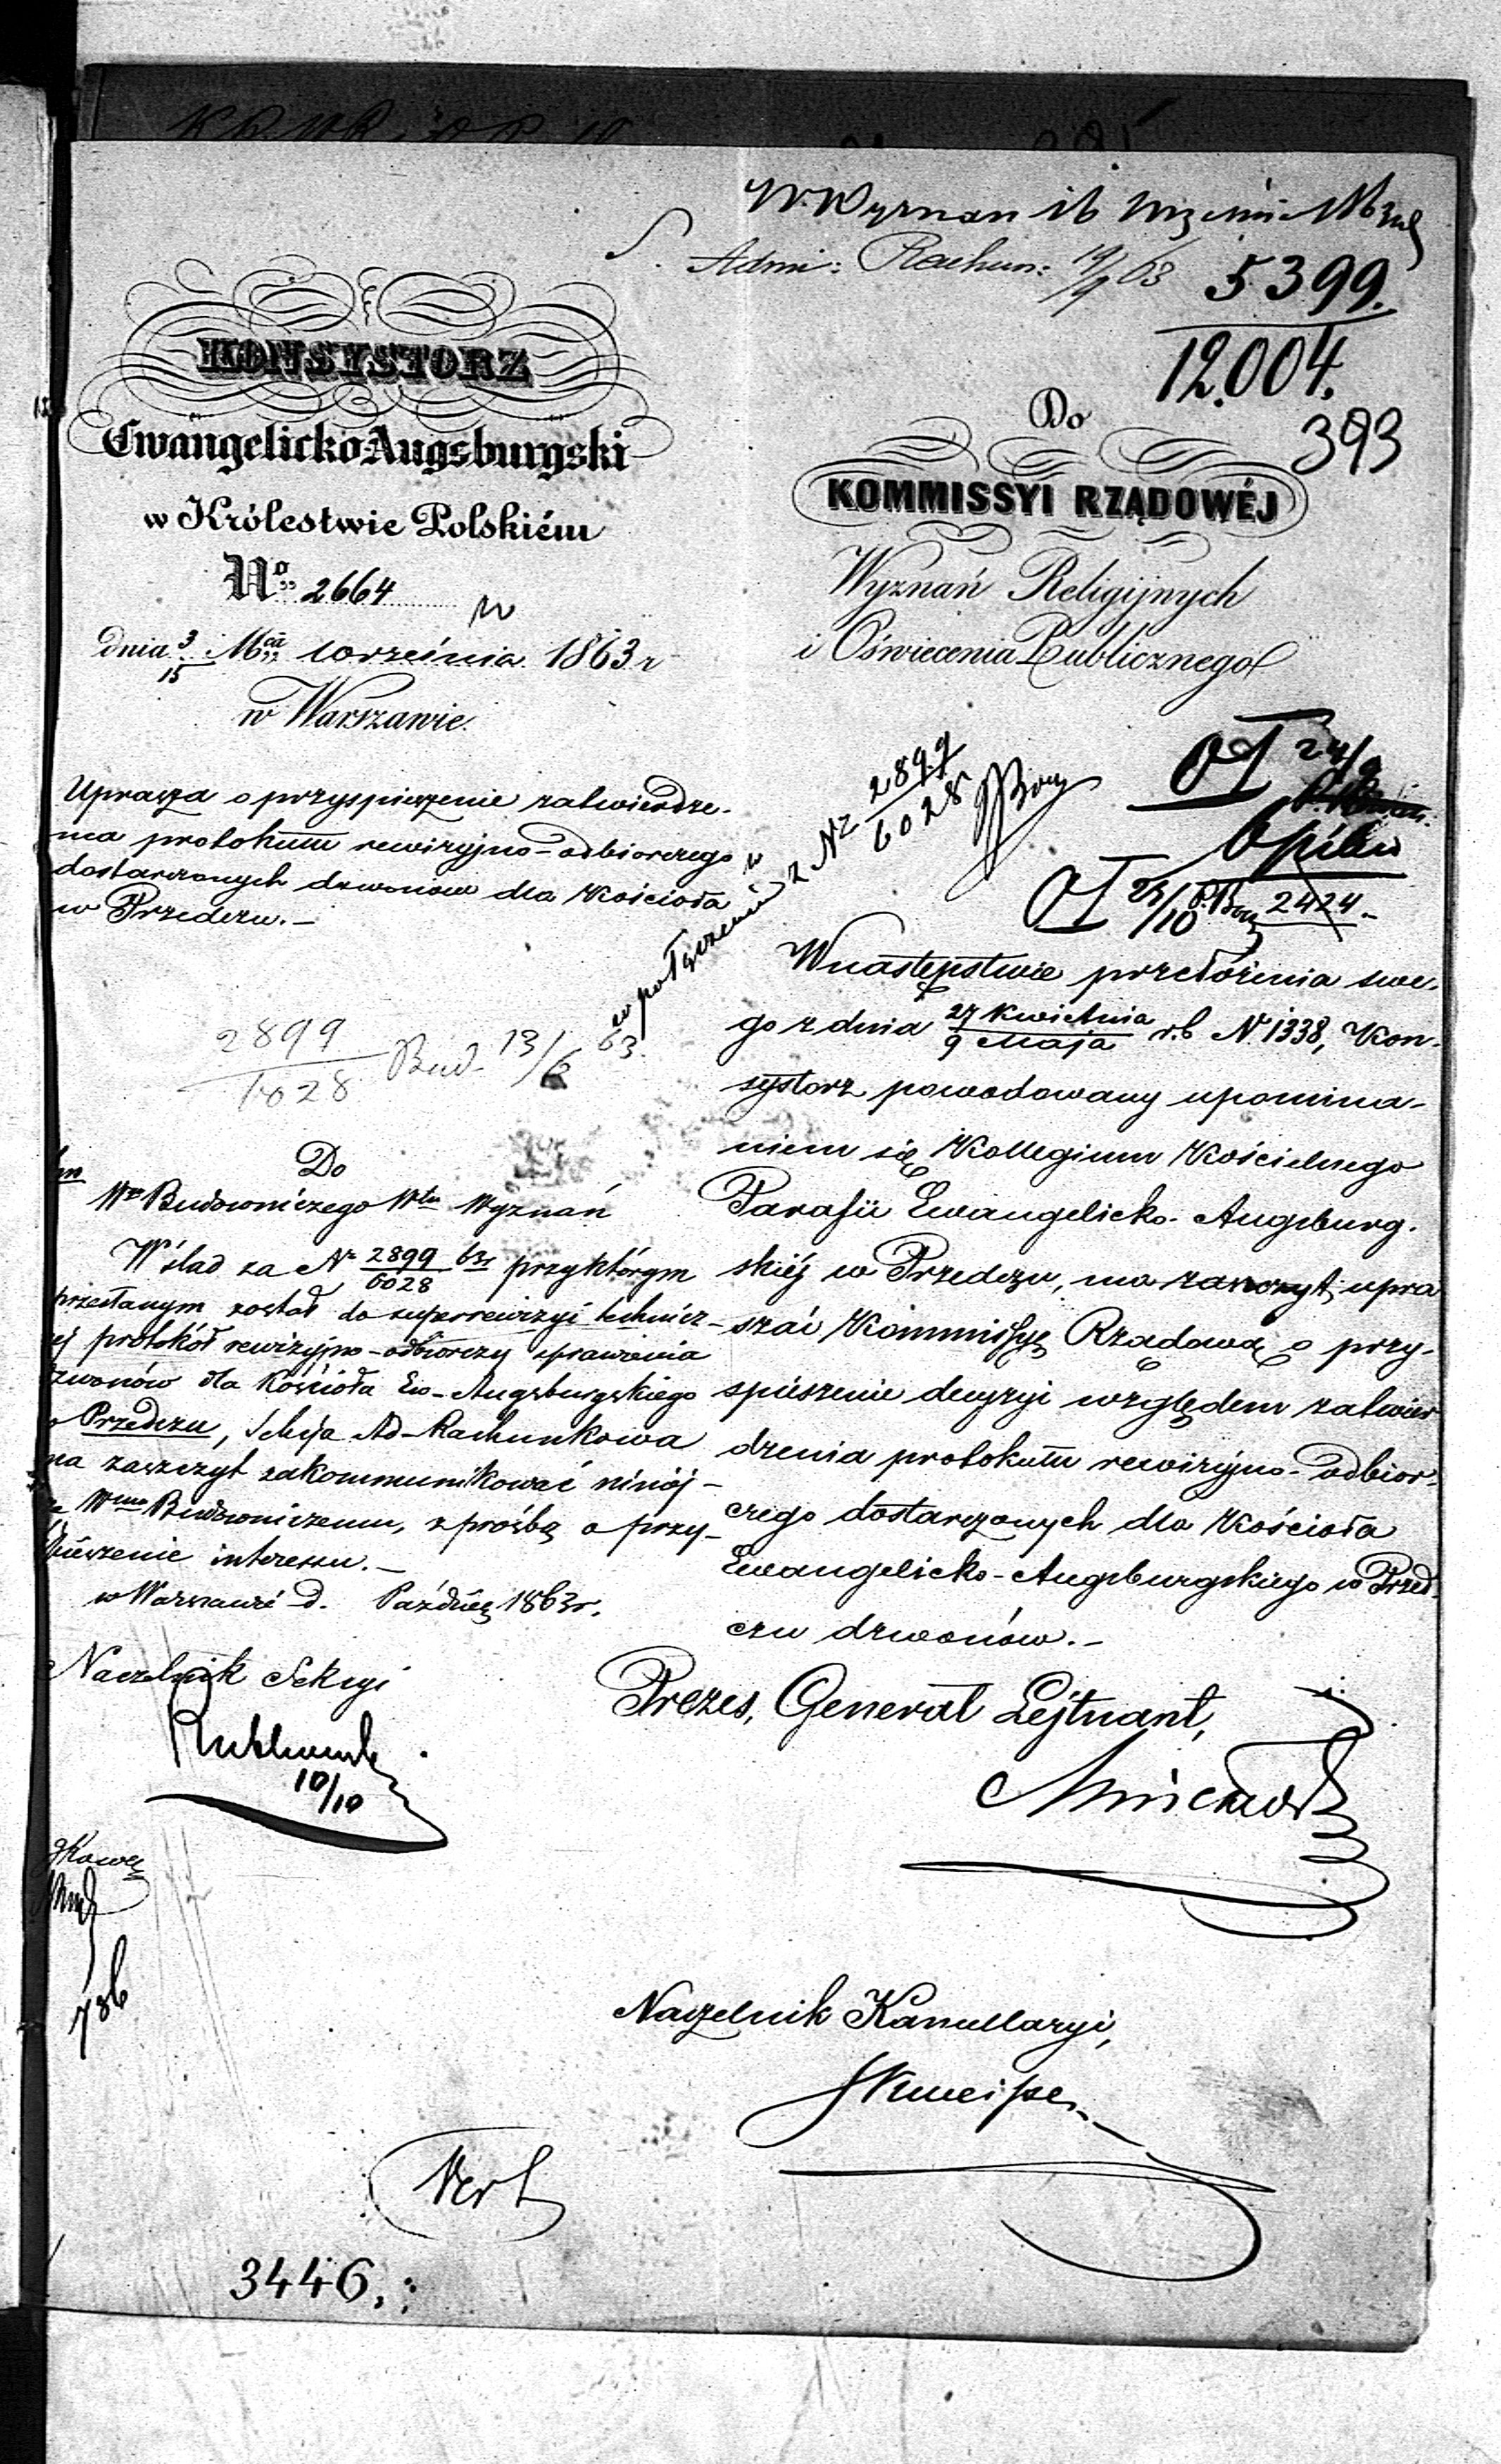 W. Wyznań
Admi: Rachun: 19/9 63
5399.
12.004.
393
KONSYSTORZ
Ewangelicko-Augsburgski
w Królestwie Polskiém
No 2664
dnia 3/15 Mca września 1863 r
w Warszawie.
Do
KOMMISSYI RZĄDOWÉJ
Wyznań Religijnych
i Oświecenia Publicznego
Uprasza o przyspieszenie zatwierdze-
nia protokułu rewizyjno-odbiorczego
dostarczonych dzwonów dla Kościoła
w Przedczu.-
w połączeniu z Nr 2899/6028
24/9
Opieku
23/10 2424.-
2899/6028 Bud. 13/6 63.
W następstwie przełożenia swe-
go z dnia 27 Kwietnia/9 Maja r.b N. 1338, Kon-
systorz powodowany upomina-
niem się Kollegium Kościelnego
Parafii Ewangelicko-Augsburg-
skiéj w Przedczu, ma zaszczyt upra
szać Kommissyę Rządową o przy-
spieszenie decyzyi względem zatwier
dzenia protokułu rewizyjno-odbior-
czego dostarczonych dla Kościoła
Ewangelicko-Augsburgskiego w Przed-
czu dzwonów.-
Prezes, Generał Lejtnant,
Naczelnik Kancellaryi,
Do
Wo Budowniczego Włu Wyznań
W ślad za Nr 2899/6028 63r przy którym
przesłanym został do superrewizyi technicz-
ej protokół rewizyjno-odbiorczy sprawienia
zwonów dla Kościoła Ew-Augsburgskiego
w Przedczu, Sekcja Ad-Rachunkowa
ma zaszczyt zakommunikować niniéj-
Wmu Budowniczemu, z prośbą o przy-
spieszenie interessu.-
w Warszawie d. Paźdź 1863r.
Naczelnik Sekcyi
10/10
3446.